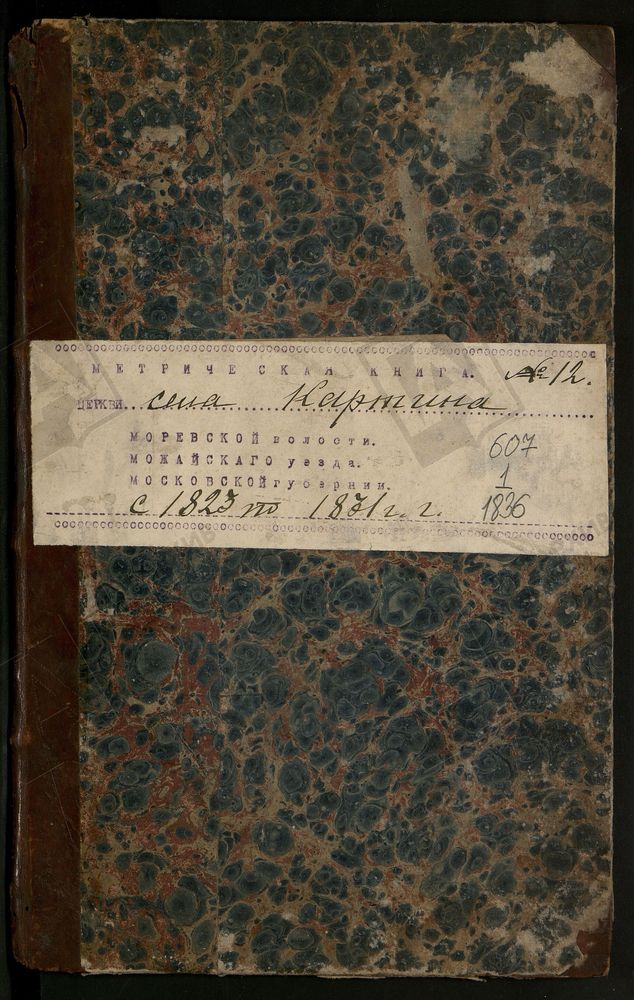 МЕТРИЧЕСКАЯ КНИГА. № 12.
ЦЕРКВИ села Картина
МОРЕВСКОЙ волости.
МОЖАЙСКАГО уезда.
МОСКОВСКОЙ губернии.
с 1823 по 1831 г.г.
607
1
1836